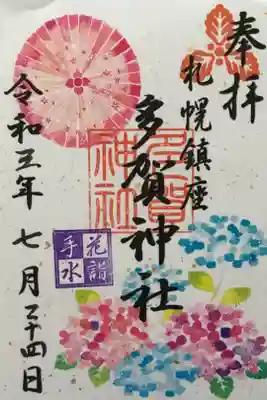 奉拝
札幌鎮座
多賀神社
多賀
神社
花詣
手水
令和三年七月二十四日